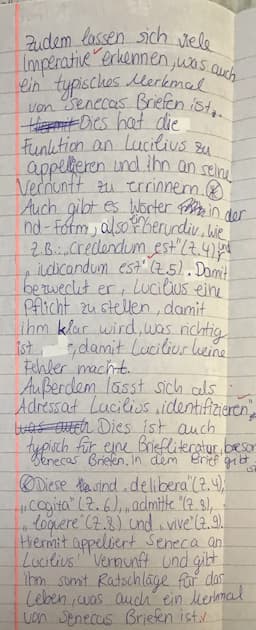 Zudem lassen sich viele
Imperative erkennen, was auch
ein typisches Merkmal
von Senecas Briefen ist.
Hiermit Dies hat die
funktion an Lucilius zu
appellieren und ihn an seine
Vernunft zu errinnern. ⊗
Auch gibt es Wörter in der
nd-Form, also ein Gerundiv, wie
z.B.: „credendum est" (Z.4) und
„iudicandum est" (Z.5). Damit
bezweckt er, Lucilius eine
Pflicht zu stellen, damit
ihm klar wird, was richtig
ist, damit Lucilius keine
Fehler macht.
Außerdem lässt sich als
Adressat Lucilius „identifizieren",
was auch Dies ist auch
typisch für eine Briefliteratur, beson
Senecas Briefen. In dem Brief gibt
⊗ Diese sind „delibera" (Z.4),
„cogita" (Z.6), „admitte" (Z.8),
„loquere" (Z.8) und „vive" (Z.9).
Hiermit appelliert Seneca an
Lucilius' Vernunft und gibt
ihm somit Ratschläge für das
Leben, was auch ein Merkmal
von Senecas Briefen ist.